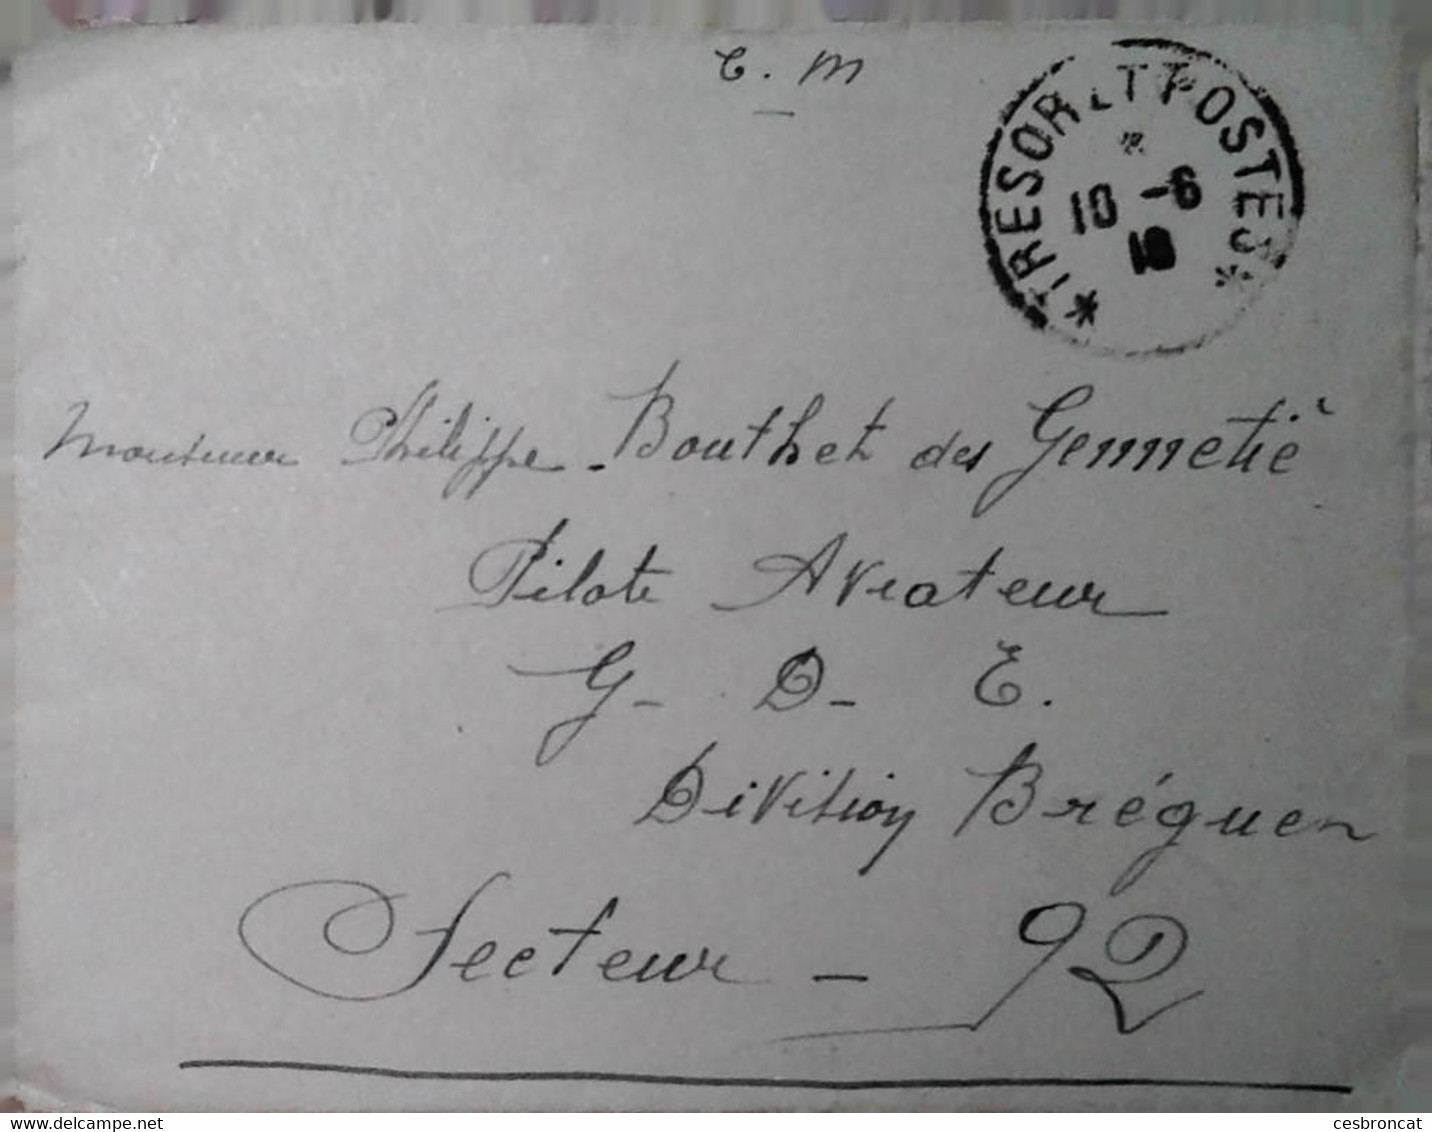 C. M
TRESOR ET POSTES
10 -6
18
Monsieur Philippe - Bouthet des Gennetié
Pilote Aviateur
G - D - E.
Division Bréguer
Secteur - 92
cesbroncat